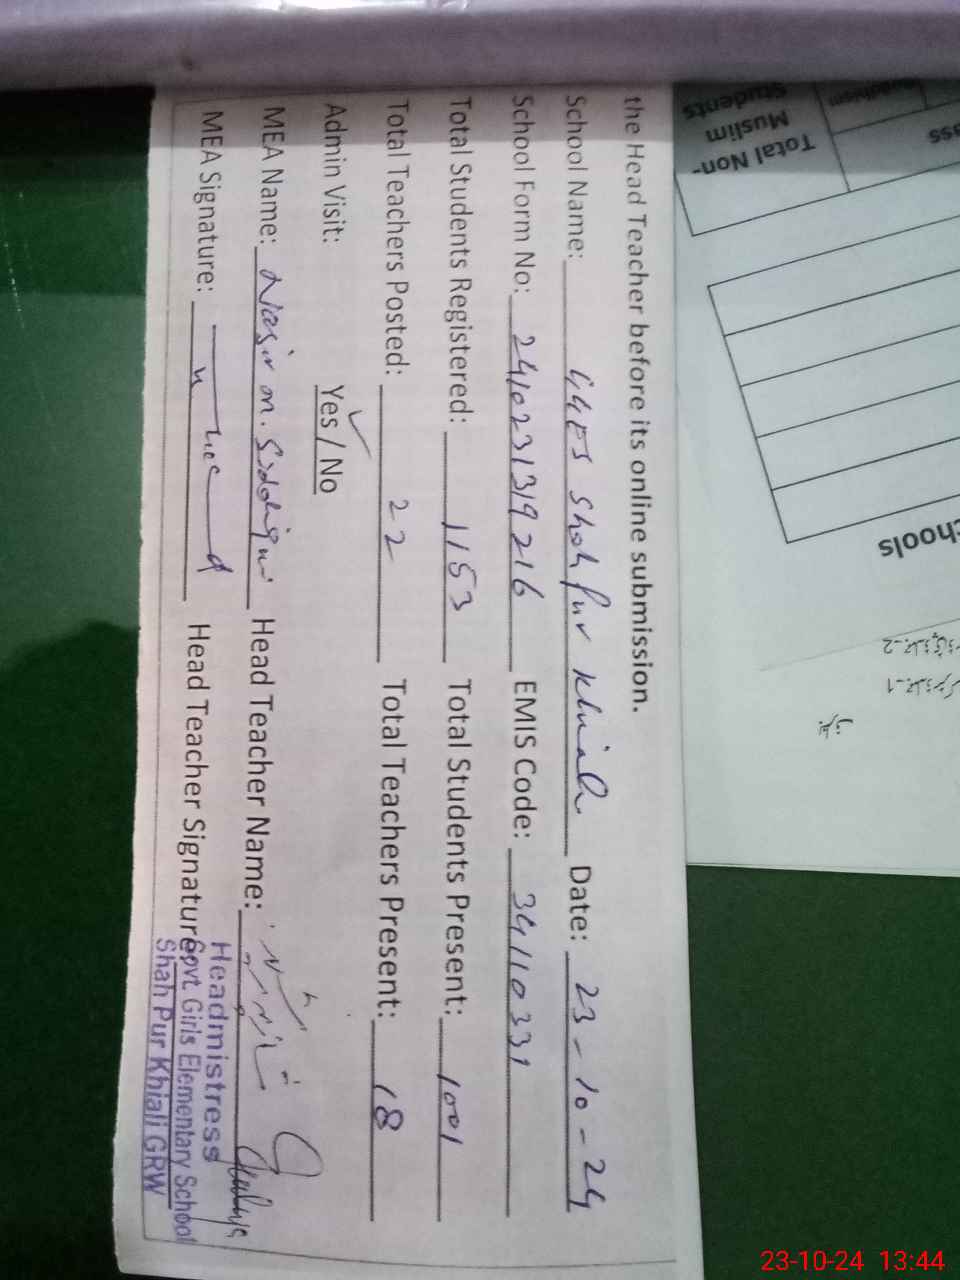 the Head Teacher before its online submission.
School Name: GGES Shah Pur Khiali Date: 23-10-24
School Form No: 2410231319216 EMIS Code: 34110331
Total Students Registered: 1153 Total Students Present: 1001
Total Teachers Posted: 22 Total Teachers Present: 18
Admin Visit: Yes / No
MEA Name: Nasir m. Siddiqui Head Teacher Name:
MEA Signature: Head Teacher Signature
Headmistress
Govt. Girls Elementary School
Shah Pur Khiali GRW
Total Non-
Muslim
Students
ass
chools
23-10-24 13:44